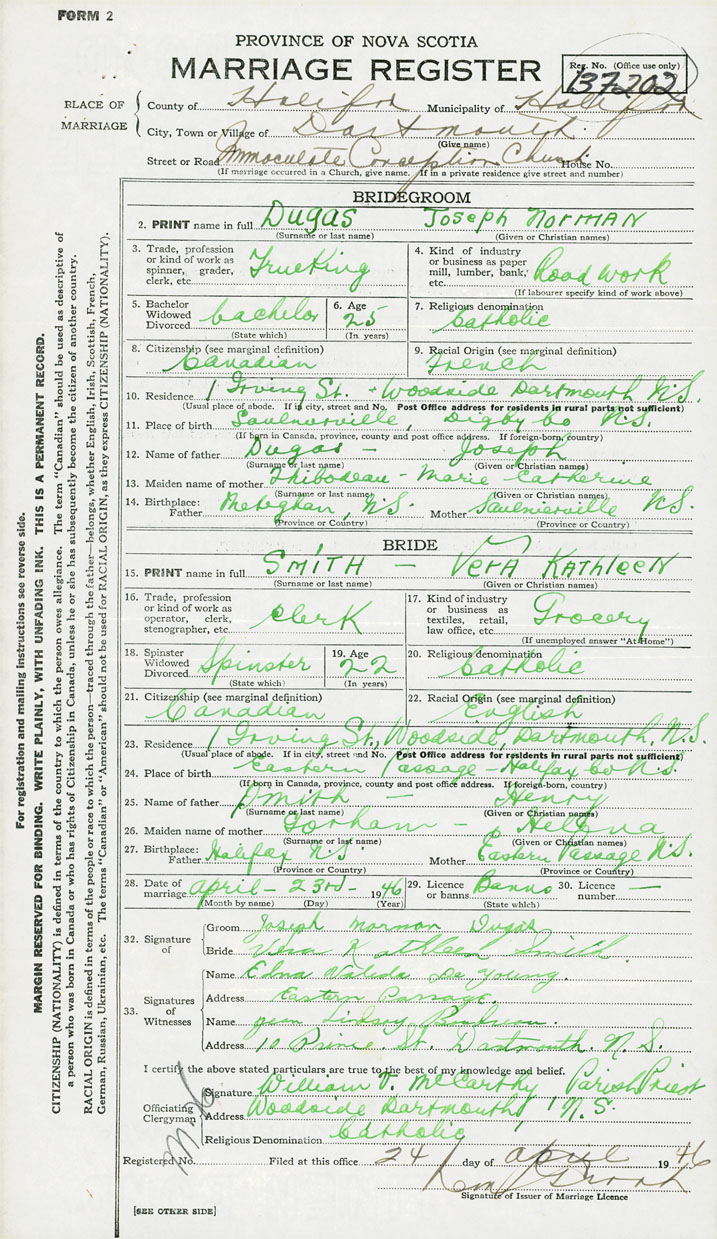 FORM 2
PROVINCE OF NOVA SCOTIA
MARRIAGE REGISTER
Reg. No. (Office use only)
137202
PLACE OF MARRIAGE
County of Halifax Municipality of Halifax
City, Town or Village of Dartmouth
(Give name)
Street or Road Immaculate Conception Church House No.
(If marriage occurred in a Church, give name. If in a private residence give street and number)
BRIDEGROOM
2. PRINT name in full DUGAS JOSEPH NORMAN
(Surname or last name) (Given or Christian names)
3. Trade, profession or kind of work as spinner, grader, clerk, etc. Trucking
4. Kind of industry or business as paper mill, lumber, bank, etc. Road work
(If labourer specify kind of work above)
5. Bachelor Widowed Divorced bachelor
(State which)
6. Age 25
(In years)
7. Religious denomination Catholic
8. Citizenship (see marginal definition) Canadian
9. Racial Origin (see marginal definition) French
10. Residence 1 Irving St. - Woodside Dartmouth N.S.
(Usual place of abode. If in city, street and No. Post Office address for residents in rural parts not sufficient)
11. Place of birth Saulnierville, Digby Co N.S.
(If born in Canada, province, county and post office address. If foreign-born, country)
12. Name of father Dugas - Joseph
(Surname or last name) (Given or Christian names)
13. Maiden name of mother Thibodeau - Marie Catherine
(Surname or last name) (Given or Christian names)
14. Birthplace: Father Meteghan, N.S. Mother Saulnierville N.S.
(Province or Country) (Province or Country)
BRIDE
15. PRINT name in full SMITH - VERA KATHLEEN
(Surname or last name) (Given or Christian names)
16. Trade, profession or kind of work as operator, clerk, stenographer, etc. Clerk
17. Kind of industry or business as textiles, retail, law office, etc. Grocery
(If unemployed answer "At Home")
18. Spinster Widowed Divorced Spinster
(State which)
19. Age 22
(In years)
20. Religious denomination Catholic
21. Citizenship (see marginal definition) Canadian
22. Racial Origin (see marginal definition) English
23. Residence 1 Irving St., Woodside, Dartmouth, N.S.
(Usual place of abode. If in city, street and No. Post Office address for residents in rural parts not sufficient)
24. Place of birth Eastern Passage - Halifax Co N.S.
(If born in Canada, province, county and post office address. If foreign-born, country)
25. Name of father Smith - Henry
(Surname or last name) (Given or Christian names)
26. Maiden name of mother Gorham - Helena
(Surname or last name) (Given or Christian names)
27. Birthplace: Father Halifax N.S. Mother Eastern Passage N.S.
(Province or Country) (Province or Country)
28. Date of marriage April - 23rd - 1946
(Month by name) (Day) (Year)
29. Licence or banns Banns
(State which)
30. Licence number —
32. Signature of
Groom Joseph Norman Dugas
Bride Vera Kathleen Smith
33. Signatures of Witnesses
Name Edna De Young.
Address Eastern Passage.
Name Lindsay
Address 10 Prince St. Dartmouth N.S.
I certify the above stated particulars are true to the best of my knowledge and belief.
Officiating Clergyman
Signature William V. McCarthy Parish Priest
Address Woodside Dartmouth N.S.
Religious Denomination Catholic
Registered No. Filed at this office 24 day of April 1946
Signature of Issuer of Marriage Licence
[SEE OTHER SIDE]
For registration and mailing instructions see reverse side.
MARGIN RESERVED FOR BINDING. WRITE PLAINLY, WITH UNFADING INK. THIS IS A PERMANENT RECORD.
CITIZENSHIP (NATIONALITY) is defined in terms of the country to which the person owes allegiance. The term "Canadian" should be used as descriptive of
a person who was born in Canada or who has rights of Citizenship in Canada, unless he or she has subsequently become the citizen of another country.
RACIAL ORIGIN is defined in terms of the people or race to which the person—traced through the father—belongs, whether English, Irish, Scottish, French,
German, Russian, Ukrainian, etc. The terms "Canadian" or "American" should not be used for RACIAL ORIGIN, as they express CITIZENSHIP (NATIONALITY).